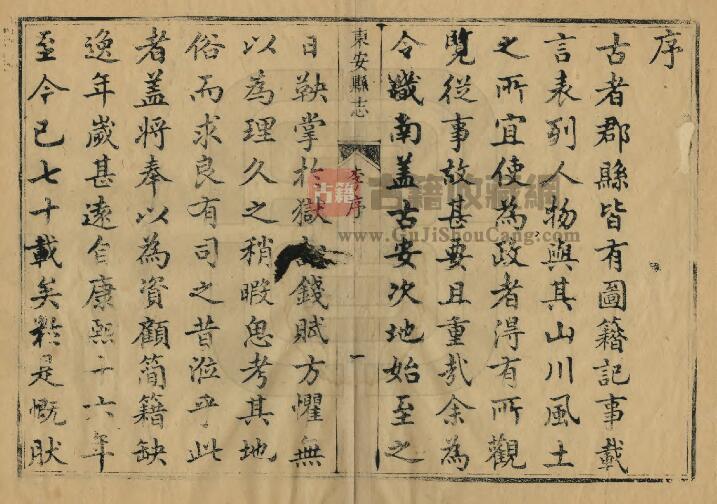 序
古者郡縣皆有圖籍記事載
言表列人物與其山川風土
之所宜使為政者得有所觀
覽從事故甚要且重哉余為
令畿南盖古安次地始至之
東安縣志
李序
一
日鞅掌於獄錢賦方懼無
以為理久之稍暇思考其地
俗而求良有司之昔涖乎此
者盖將奉以為資顧簡籍缺
逸年歲甚遠自康熙十六年
至今已七十載矣於是慨肰
古籍
古籍收藏網
www.GuJiShouCang.com